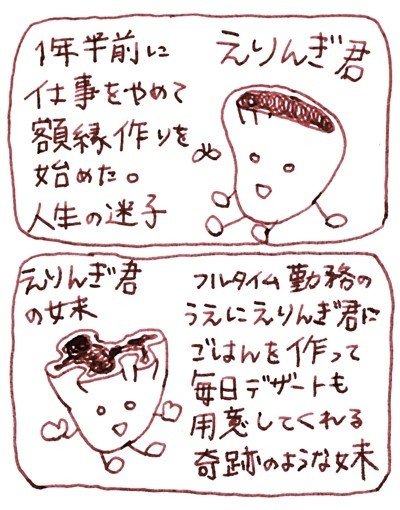 えりんぎ君
1年半前に
仕事をやめて
額縁作りを
始めた。
人生の迷子
えりんぎ君
の妹
フルタイム勤務の
うえにえりんぎ君に
ごはんを作って
毎日デザートも
用意してくれる
奇跡のような妹